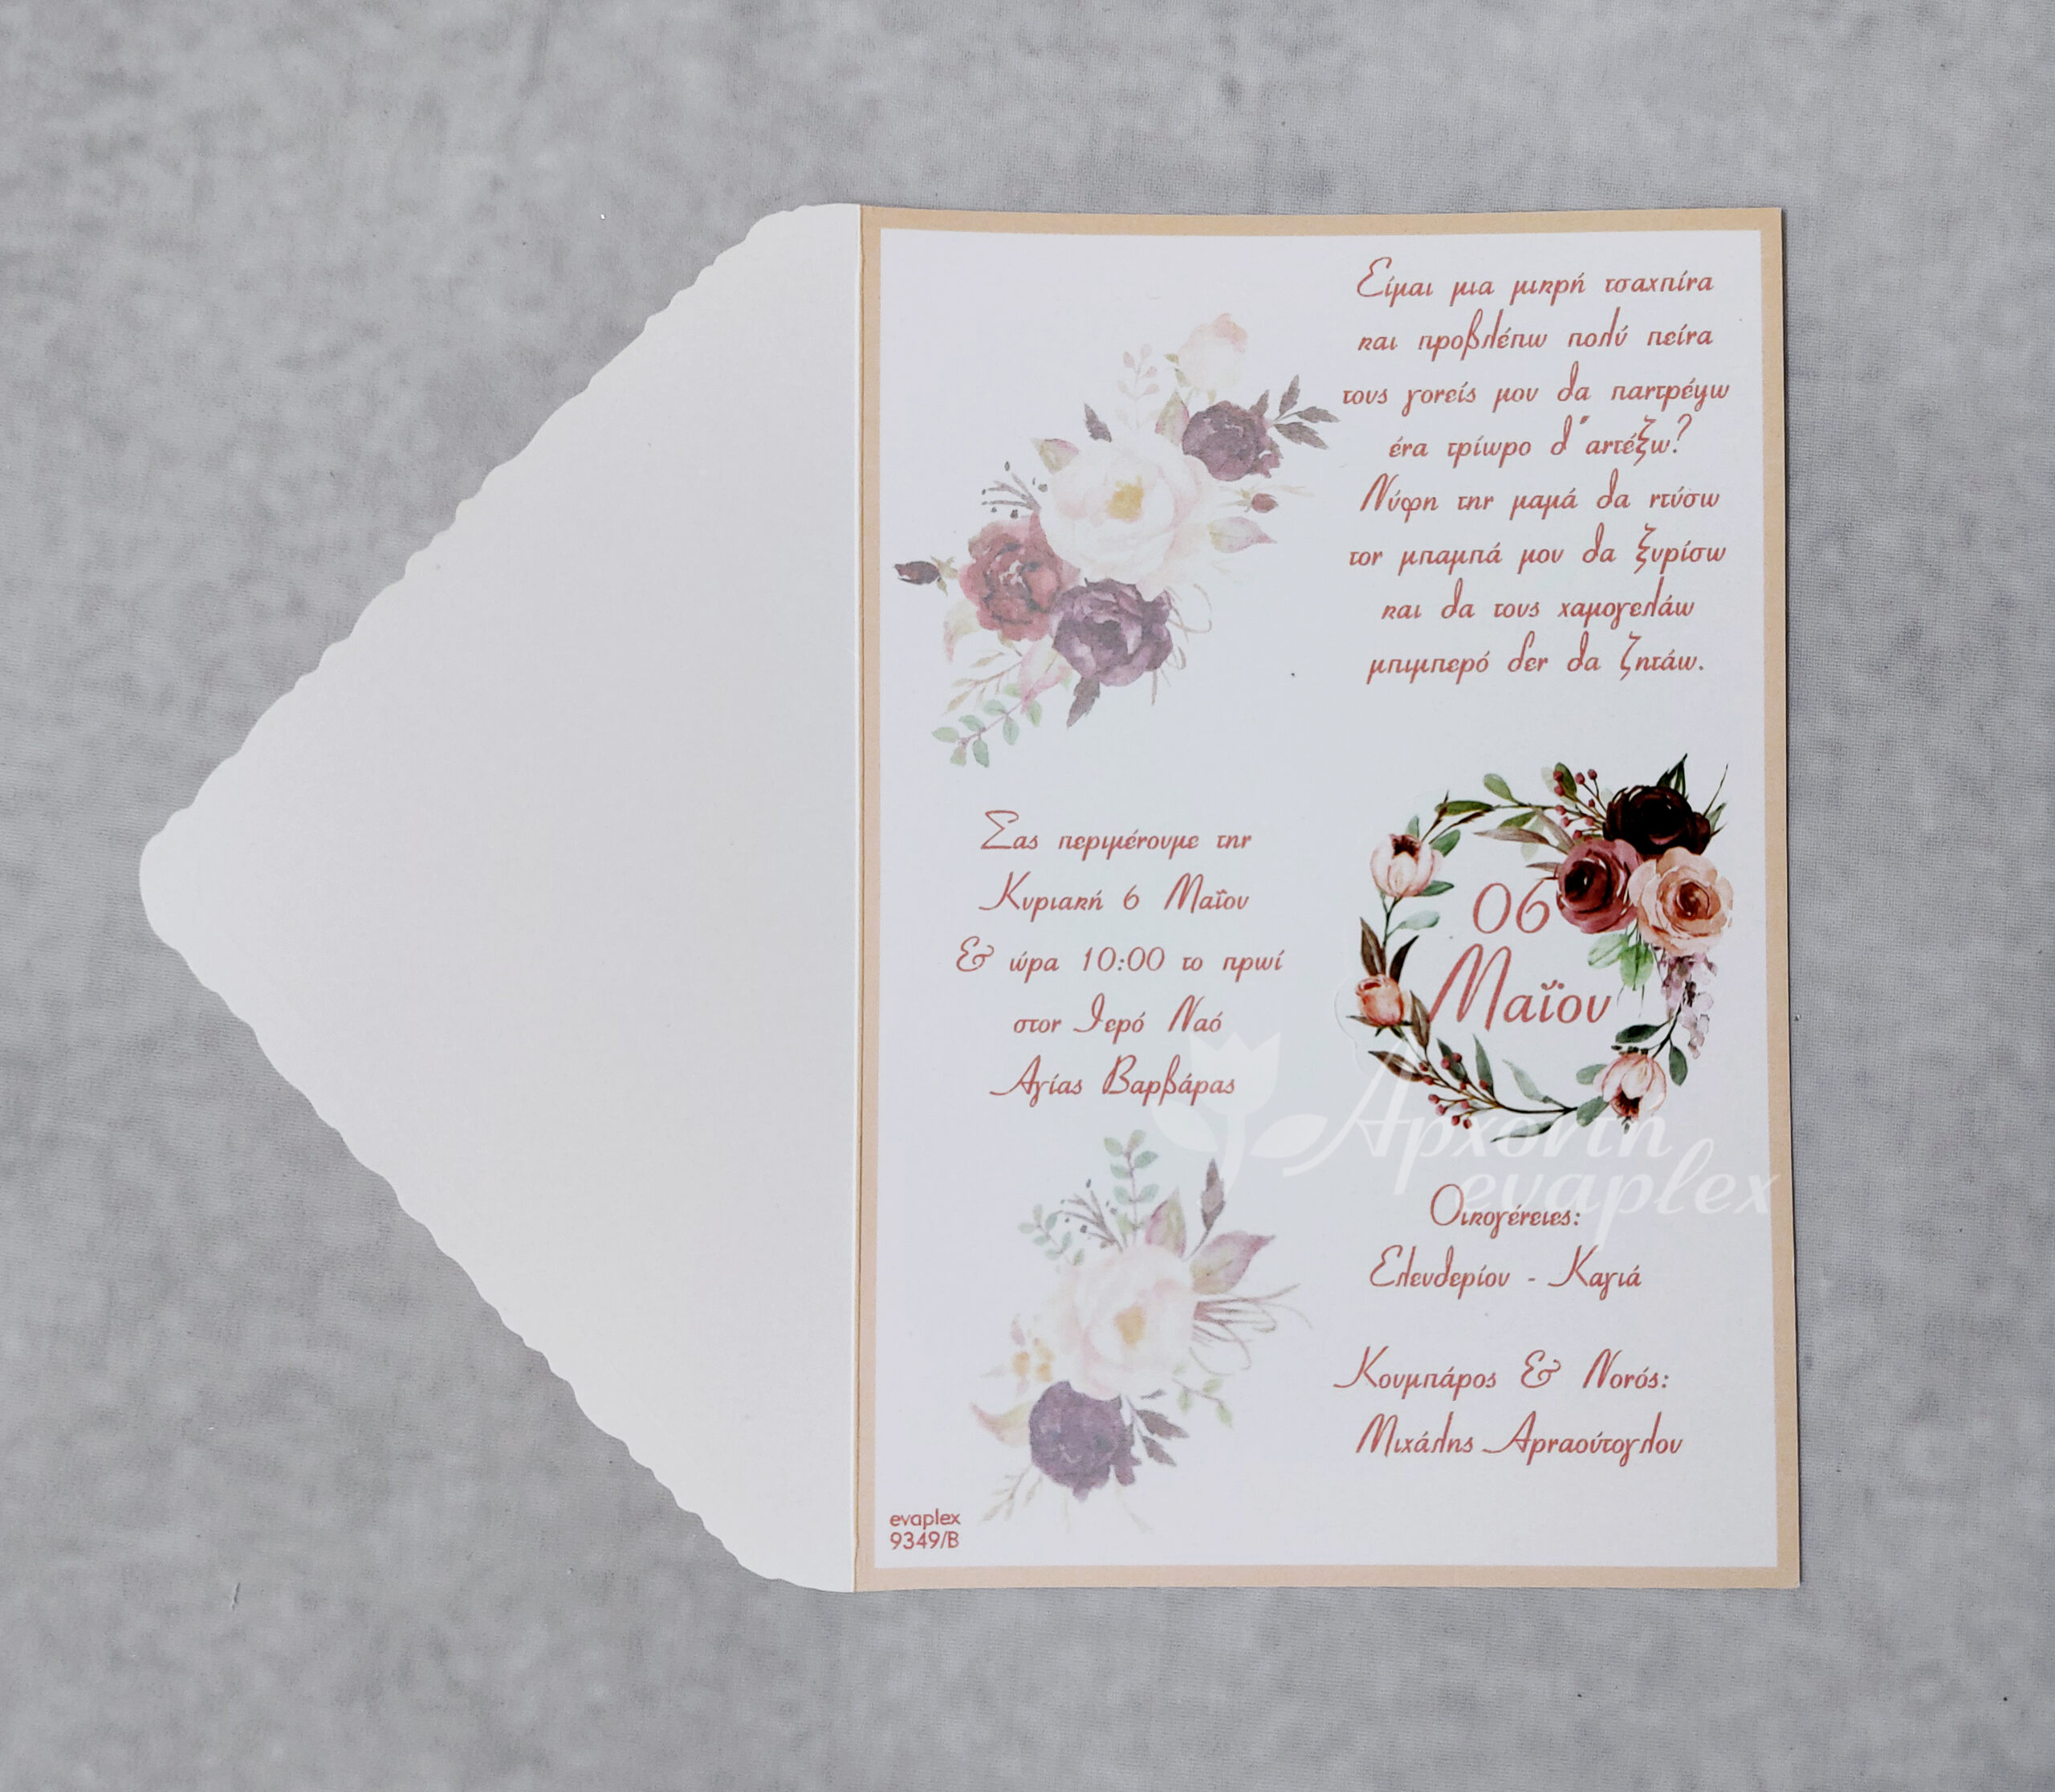 Είμαι μια μικρή τσαχπίνα
και προβλέπω πολύ πείνα
τους γονείς μου θα παντρέψω
ένα τρίωρο θ' αντέξω?
Νύφη την μαμά θα ντύσω
τον μπαμπά μου θα ξυρίσω
και θα τους χαμογελάω
μπιμπερό δεν θα ζητάω.
Σας περιμένουμε την
Κυριακή 6 Μαΐου
& ώρα 10:00 το πρωί
στον Ιερό Ναό
Αγίας Βαρβάρας
06
Μαΐου
Αρχοντή
evaplex
Οικογένειες:
Ελευθερίου - Καγιά
Κουμπάρος & Νονός:
Μιχάλης Αρναούτογλου
evaplex
9349/B